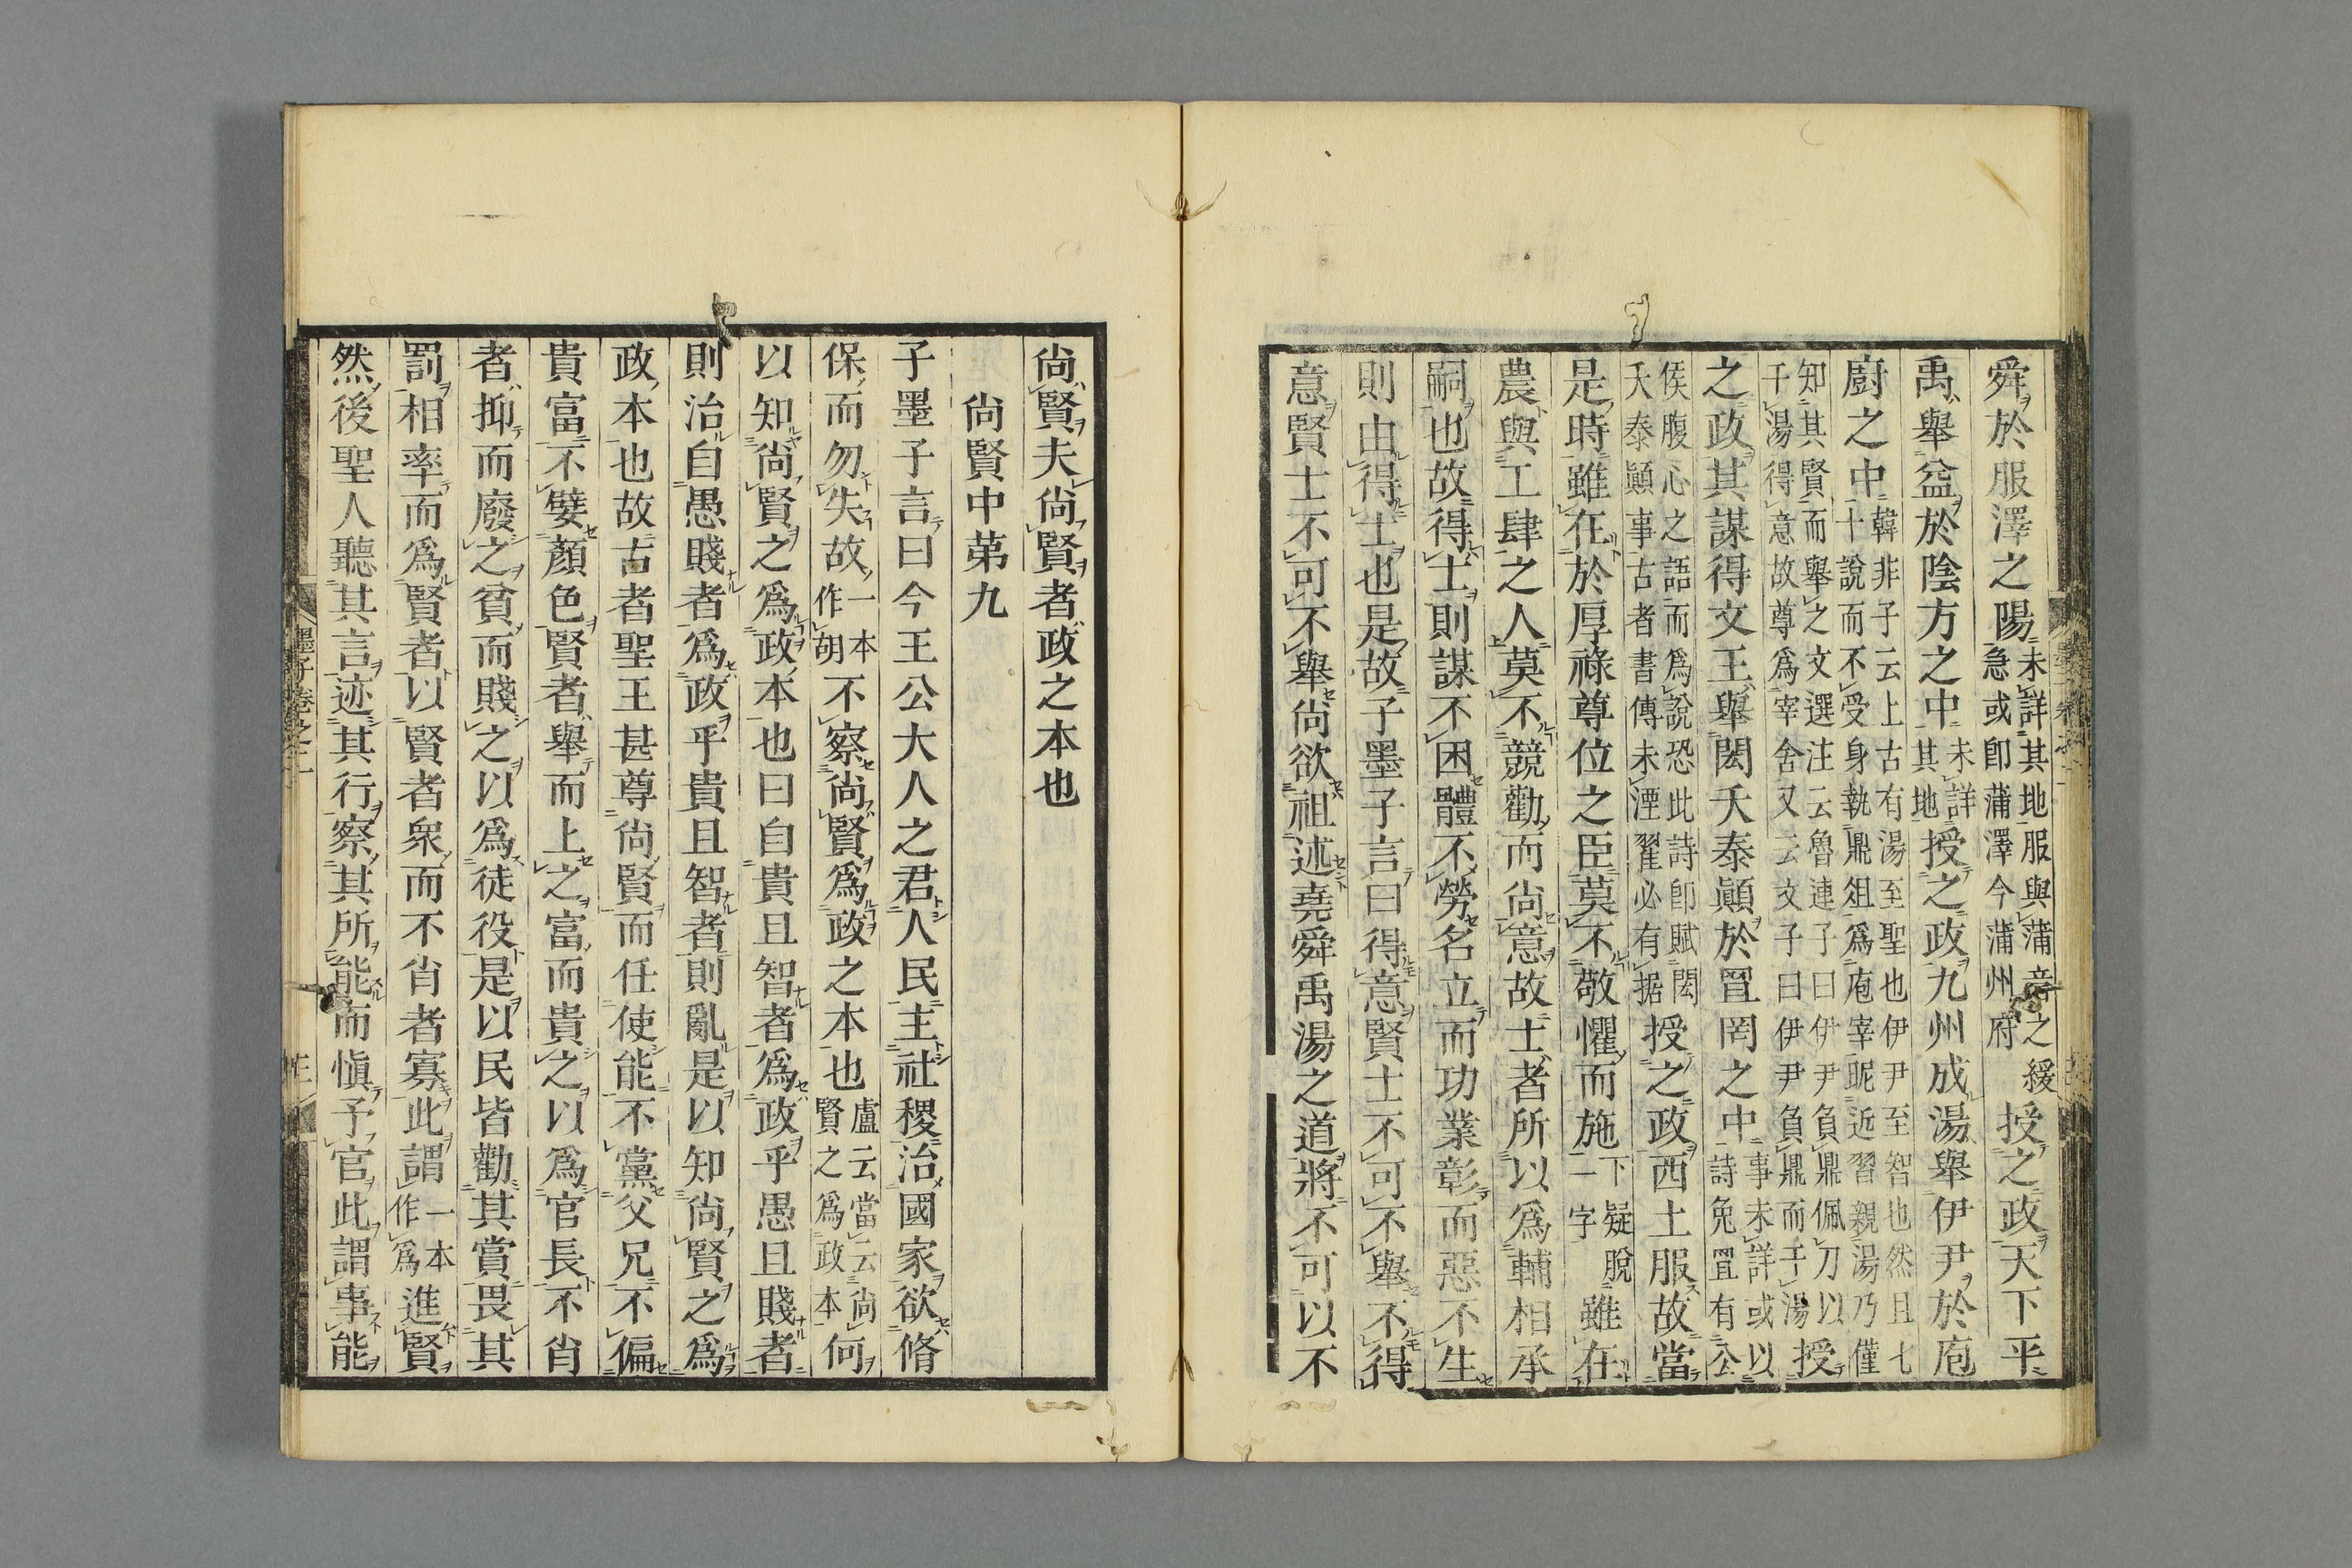 舜於服澤之陽未詳其地服與蒲音之緩急或即蒲澤今蒲州府授之政天下平
禹舉益於陰方之中未詳其地授之政九州成湯舉伊尹於庖
廚之中韓非子云上古有湯至聖也伊尹至智也然且七十說而不受身執鼎俎爲庖宰昵近習親湯乃僅
知其賢而舉之文選注云魯連子曰伊尹負鼎佩刀以干湯得意故尊爲宰舍又云文子曰伊尹負鼎而干湯授
之政其謀得文王舉閎夭泰顚於罝罔之中事未詳或以詩兔罝有公
侯腹心之語而爲說恐此詩卽賦閎夭泰顚事古者書傳未湮翟必有据授之政西土服故當
是時雖在於厚祿尊位之臣莫不敬懼而施下疑脫二字雖在
農與工肆之人莫不競勸而尚意故士者所以爲輔相承
嗣也故得士則謀不困體不勞名立而功業彰而惡不生
則由得士也是故子墨子言曰得意賢士不可不舉不得
意賢士不可不舉尚欲祖述堯舜禹湯之道將不可以不
尚賢夫尚賢者政之本也
尚賢中第九
子墨子言曰今王公大人之君人民主社稷治國家欲脩
保而勿失故一本作胡不察尚賢爲政之本也盧云當云尚賢之爲政本何
以知尚賢之爲政本也曰自貴且智者爲政乎愚且賤者
則治自愚賤者爲政乎貴且智者則亂是以知尚賢之爲
政本也故古者聖王甚尊尚賢而任使能不黨父兄不偏
貴富不嬖顏色賢者舉而上之富而貴之以爲官長不肖
者抑而廢之貧而賤之以爲徒役是以民皆勸其賞畏其
罰相率而爲賢者以賢者衆而不肖者寡此謂一本作爲進賢
然後聖人聽其言迹其行察其所能而愼予官此謂事能
墨子卷之二